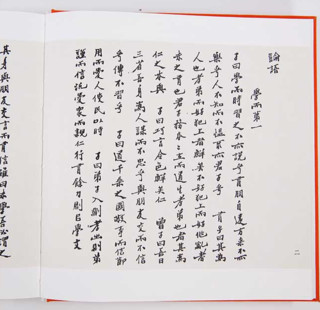 論語
學而第一
子曰學而時習之不亦說乎有朋自遠方來不亦
樂乎人不知而不慍不亦君子乎 有子曰其為
人也孝弟而好犯上者鮮矣不好犯上而好作亂者
未之有也君子務本本立而道生孝弟也者其為
仁之本與 子曰巧言令色鮮矣仁 曾子曰吾日
三省吾身為人謀而不忠乎與朋友交而不信
乎傳不習乎 子曰道千乘之國敬事而信節
用而愛人使民以時 子曰弟子入則孝出則弟
謹而信汎愛眾而親仁行有餘力則以學文
其身與朋友交言而有信雖曰未學吾必謂之